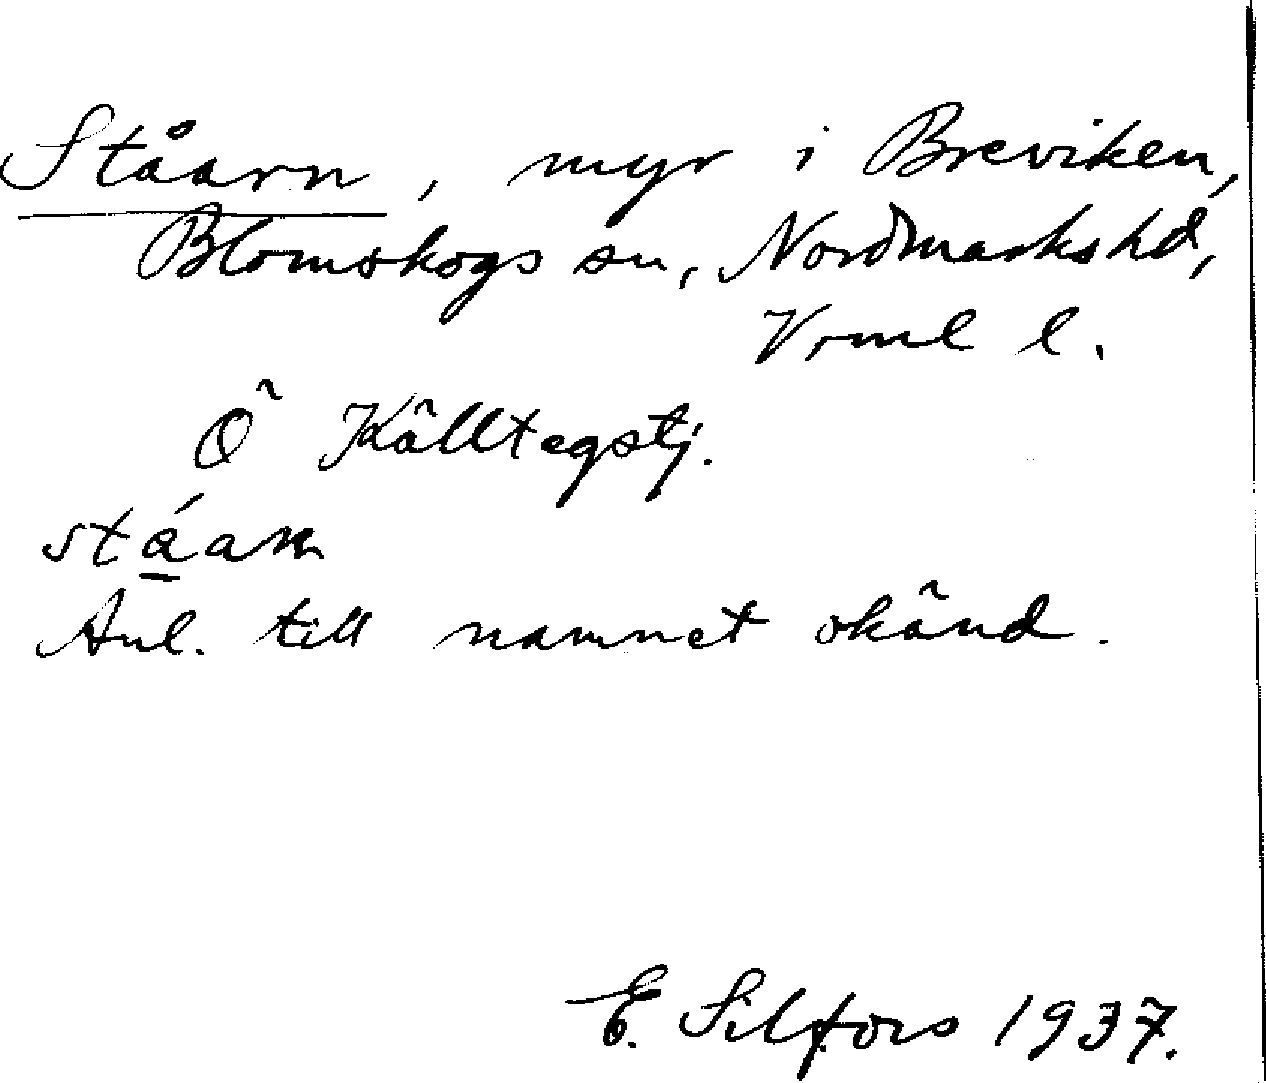 Ståarn, myr i Breviken,
Blomskogs sn, Nordmarks hd,
Vrml l.
Ö Källtegstj.
stáarn
Anl. till namnet okänd.
E. Silfors 1937.